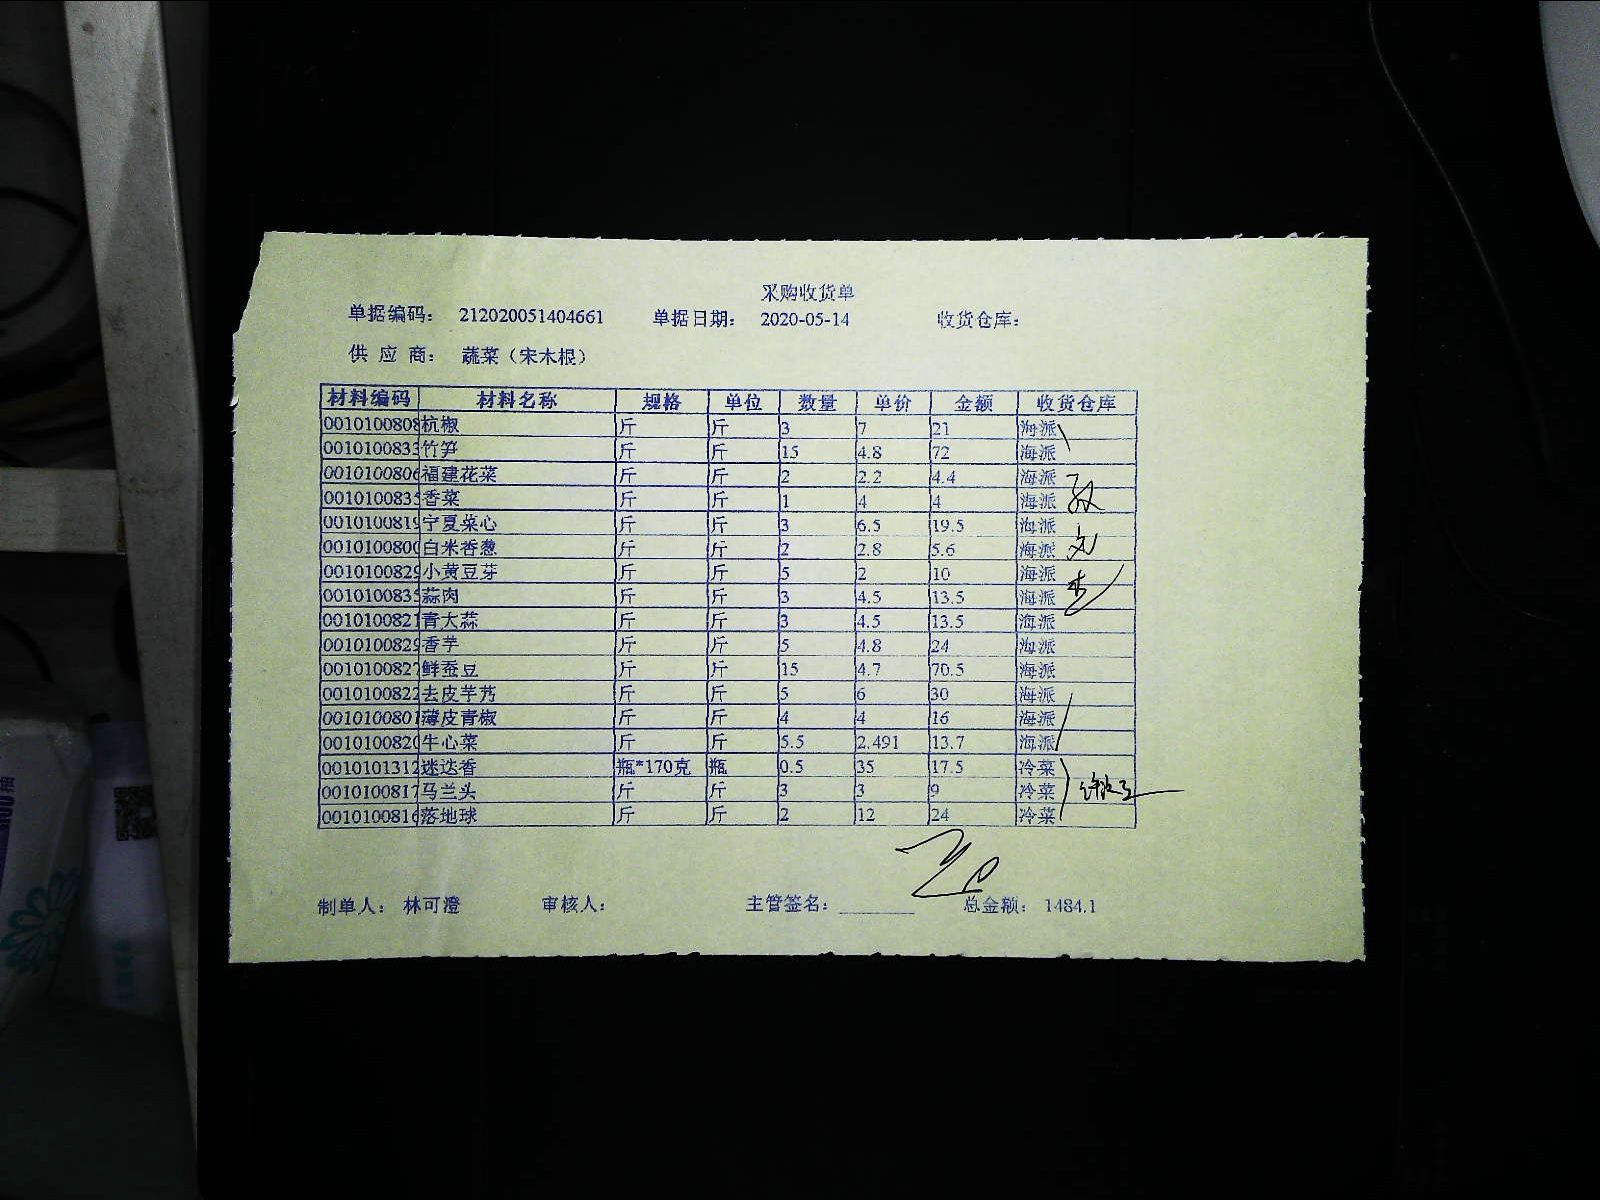 采购收货单
单据编码： 212020051404661 单据日期： 2020-05-14 收货仓库：
供 应 商： 蔬菜（宋木根）
材料编码 材料名称 规格 单位 数量 单价 金额 收货仓库
0010100808 杭椒 斤 斤 3 7 21 海派
001010083 竹笋 斤 斤 15 4.8 72 海派
001010080 福建花菜 斤 斤 2 2.2 4.4 海派
001010083 香菜 斤 斤 1 4 4 海派
001010081 宁夏菜心 斤 斤 3 6.5 19.5 海派
001010080 白米香葱 斤 斤 2 2.8 5.6 海派
001010082 小黄豆芽 斤 斤 5 2 10 海派
001010083 蒜肉 斤 斤 3 4.5 13.5 海派
001010082 青大蒜 斤 斤 3 4.5 13.5 海派
001010082 香芋 斤 斤 5 4.8 24 海派
001010082 鲜蚕豆 斤 斤 15 4.7 70.5 海派
001010082 去皮芋艿 斤 斤 5 6 30 海派
001010080 薄皮青椒 斤 斤 4 4 16 海派
001010082 牛心菜 斤 斤 5.5 2.491 13.7 海派
001010131 迷迭香 瓶*170克 瓶 0.5 35 17.5 冷菜
001010081 马兰头 斤 斤 3 3 9 冷菜
001010081 落地球 斤 斤 2 12 24 冷菜
制单人： 林可澄 审核人： 主管签名： 总金额： 1484.1